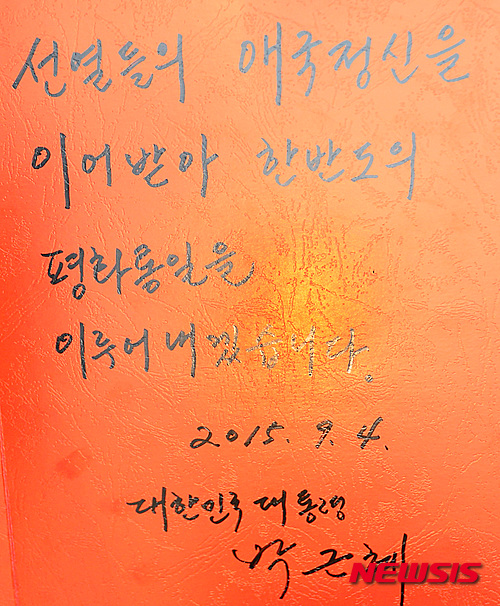 선열들의 애국정신을
이어받아 한반도의
평화통일을
이루어 내겠습니다.
2015. 9. 4.
대한민국 대통령
박근혜
NEWSIS